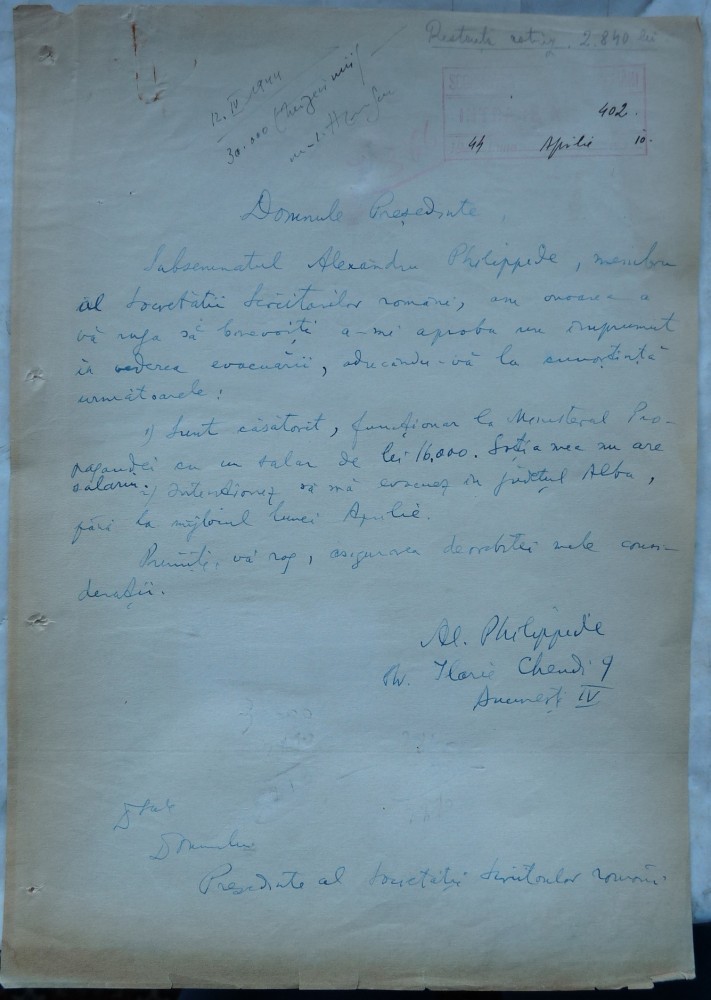 Restanță cotiz. 2.840 lei
12.IV.1944
30.000 (treizeci mii)
402.
44 Aprilie 10.
Domnule Președinte,
Subsemnatul Alexandru Philippide, membru
al Societății Scriitorilor români, am onoarea a
vă ruga să binevoiți a-mi aproba un împrumut
în vederea evacuării, aducându-vă la cunoștință
următoarele:
1) Sunt căsătorit, funcționar la Ministerul Pro-
pagandei cu un salar de lei 16.000. Soția mea nu are
salariu. 2) Intenționez să mă evacuez în județul Alba,
până la mijlocul lunei Aprilie.
Primiți, vă rog, asigurarea deosebitei mele consi-
derații.
Al. Philippide
Str. Ilarie Chendi 9
București IV
D-sale
Domnului
Președinte al Societății Scriitorilor români